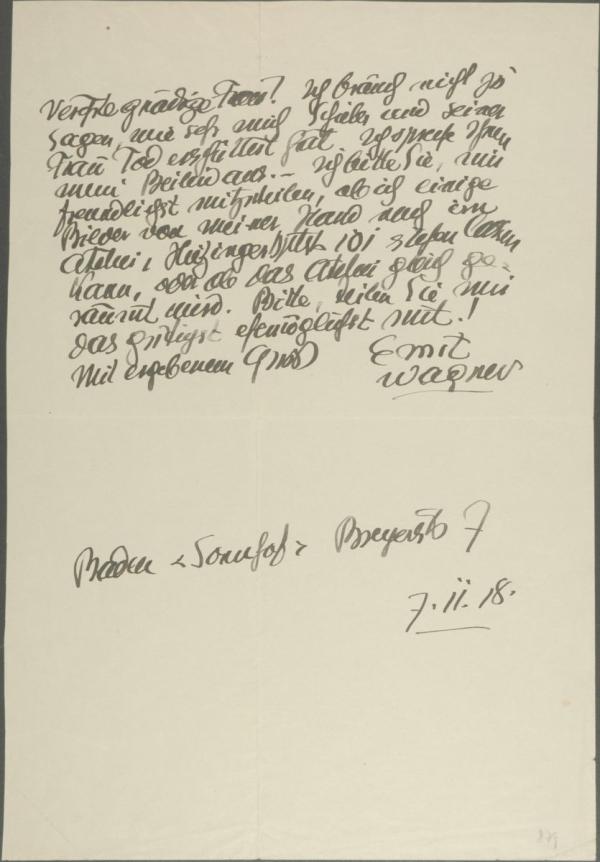 Verehrte gnädige Frau! Ich brauch nicht zu
sagen, wie sehr mich Schieles und seiner
Frau Tod erschüttert hat. Ich spreche Ihnen
mein Beileid aus. – Ich bitte Sie, mir
freundlichst mitzuteilen, ob ich einige
Bilder von meiner Hand noch im
Atelier, Hietzingerhptst 101 stehen lassen
kann, oder ob das Atelier gleich ge-
räumt wird. Bitte, teilen Sie mir
das gütigst ehemöglichst mit!
Mit ergebenem Gruß
Emit
Wagner
Baden "Sonnhof" 7
7. II. 18.
879